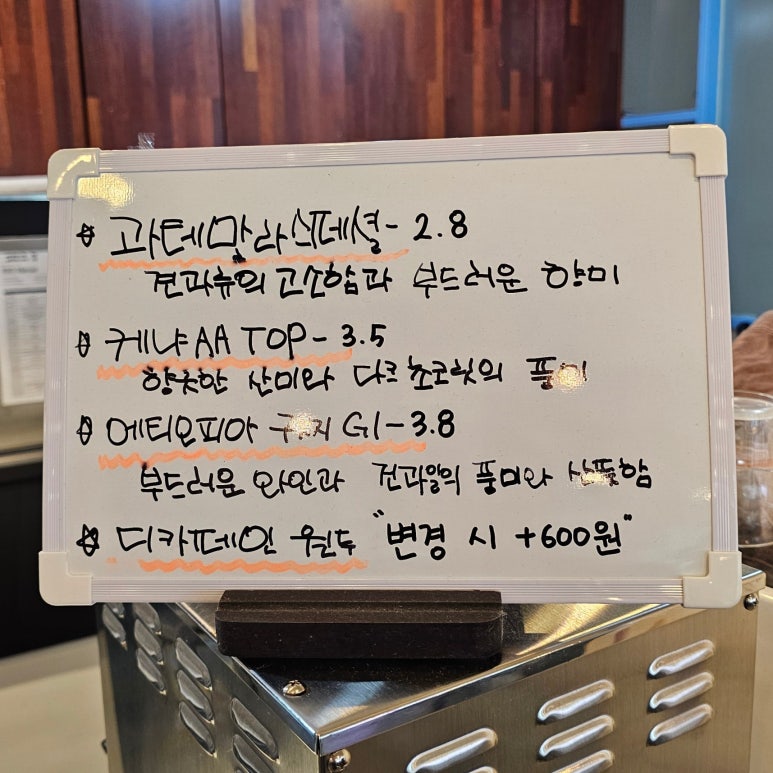 과테말라 스페셜- 2.8
견과류의 고소함과 부드러운 향미
케냐 AA TOP- 3.5
향긋한 산미와 다크 초코릿의 풍미
에티오피아 G1-3.8
부드러운 와인과 건과일의 풍미와 산뜻함
디카페인 원두 "변경 시 +600원"